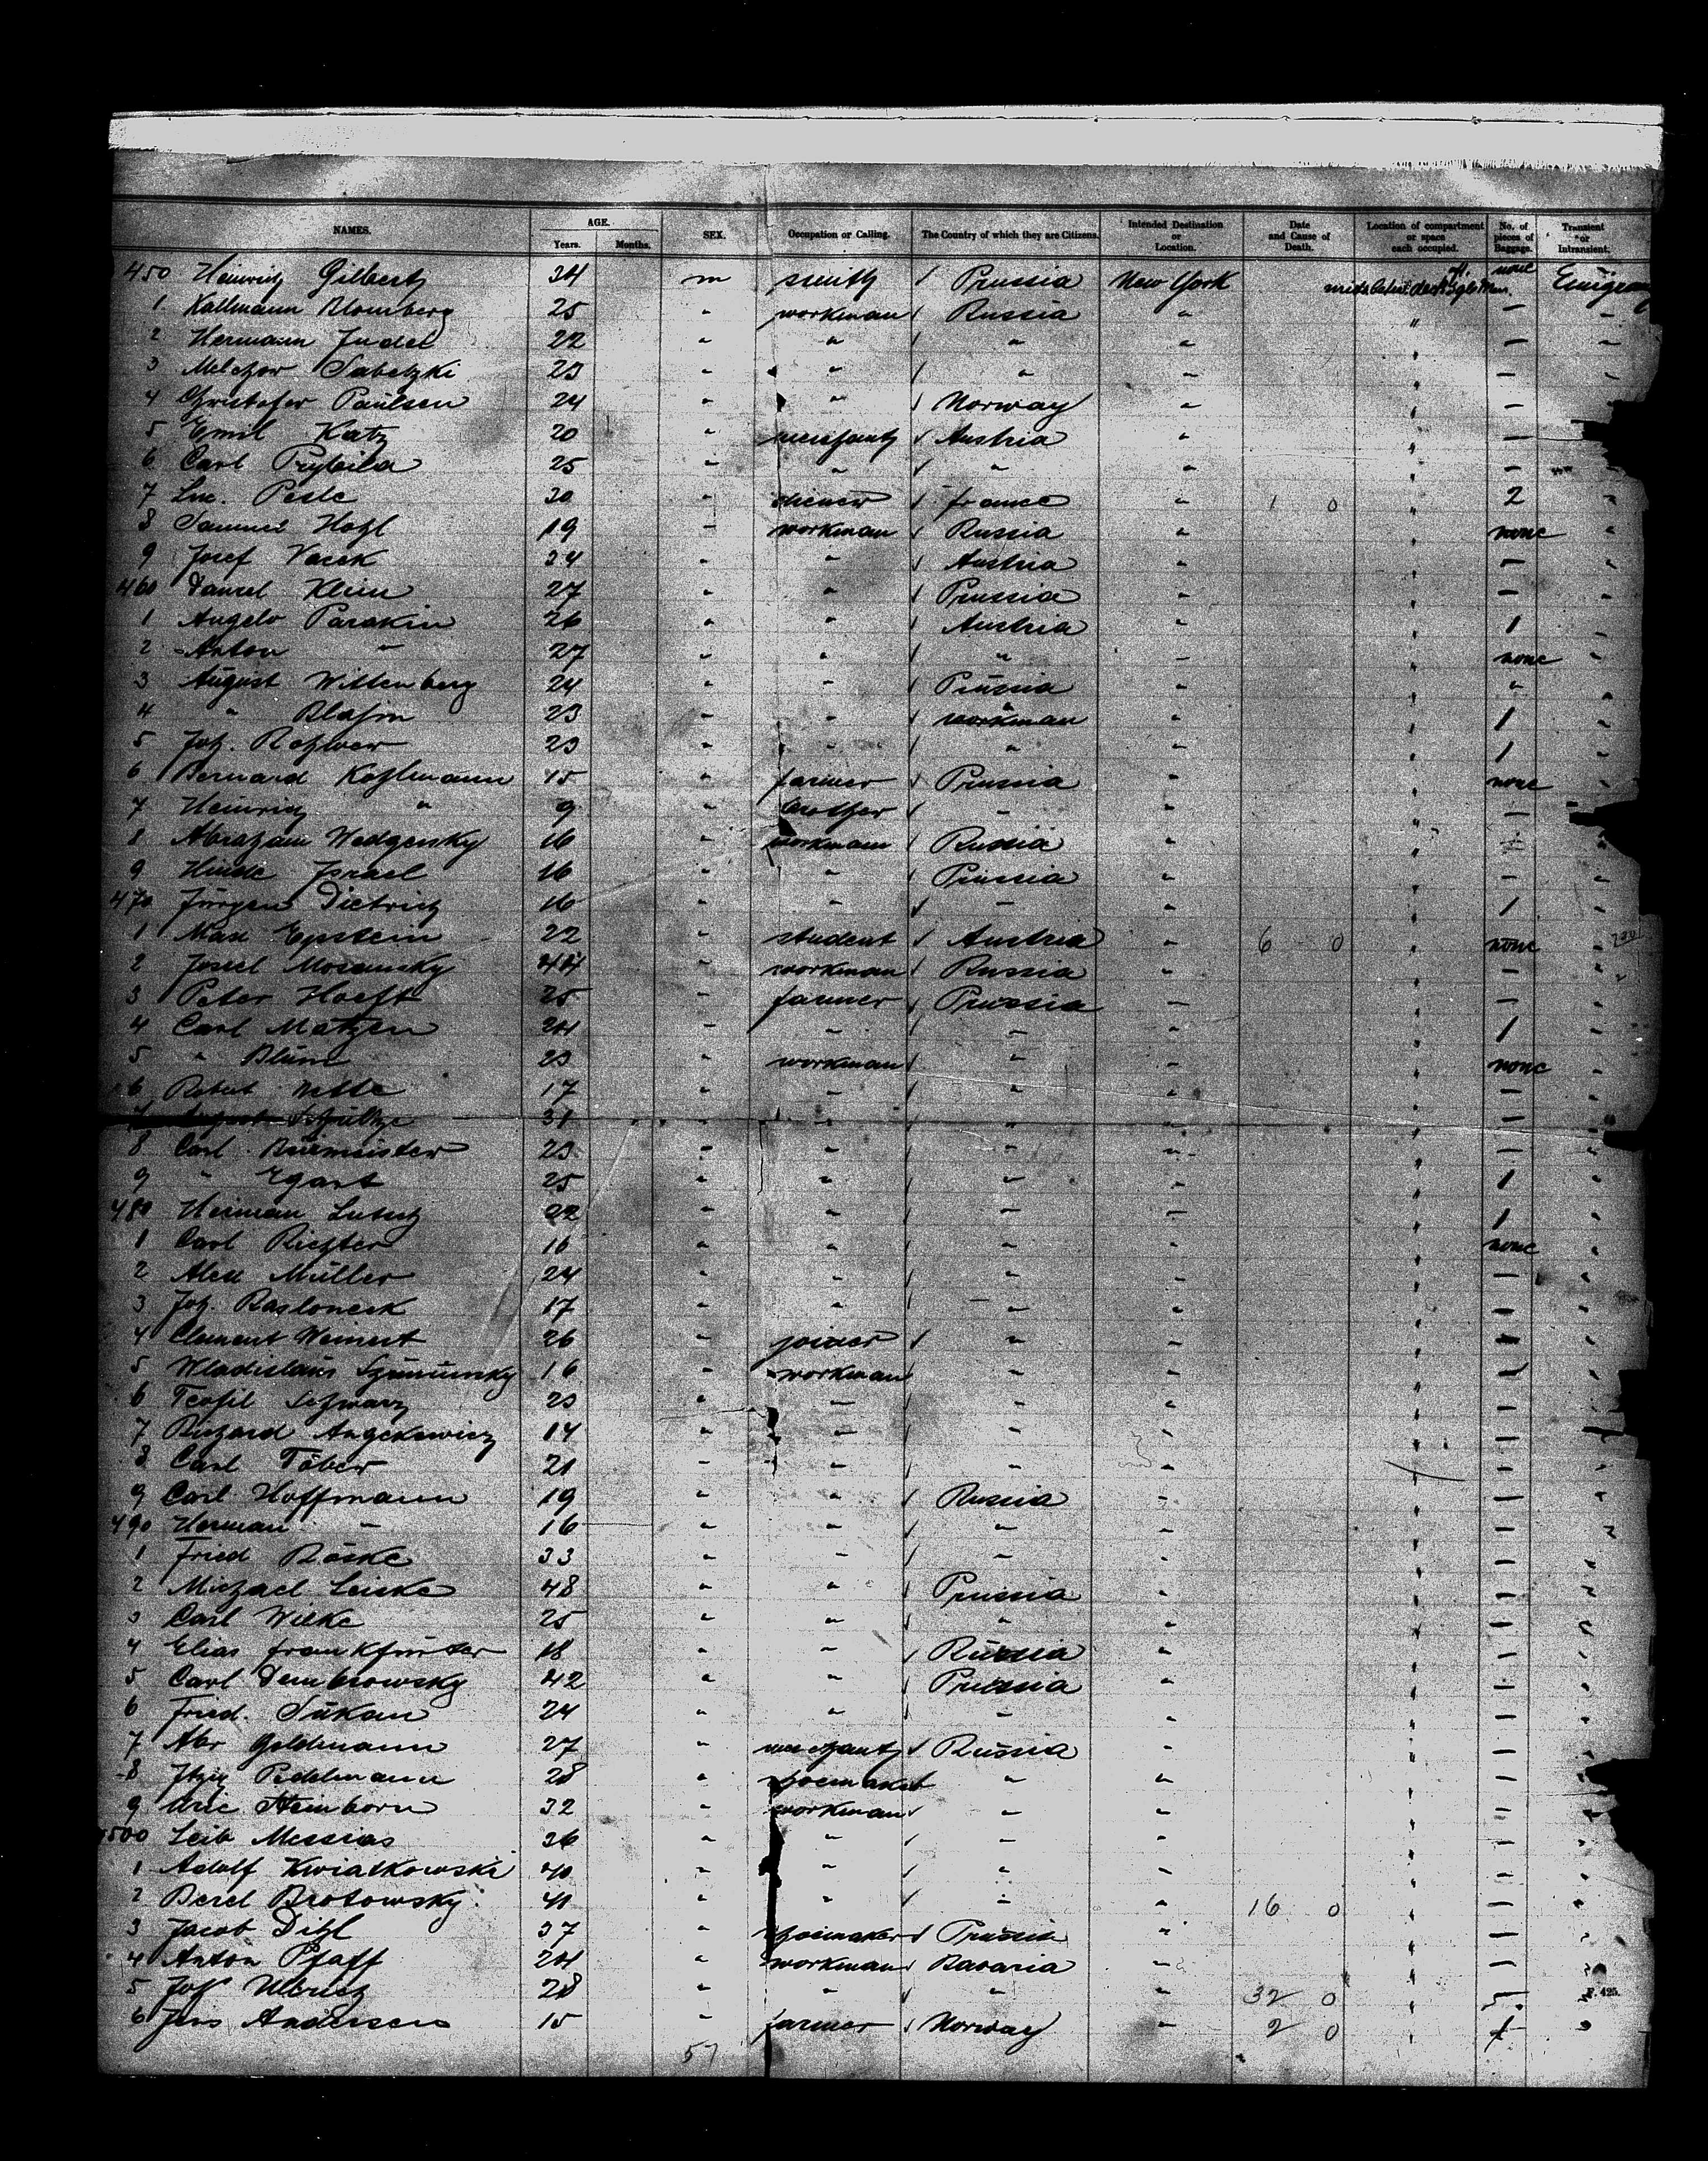 NAMES. AGE. Years. Months. SEX. Occupation or Calling. The Country of which they are Citizens. Intended Destination or Location. Date and Cause of Death. Location of compartment or space each occupied. No. of pieces of Baggage. Transient or Intransient.
450 Heinrich Gilbert 34 m smith Prussia New York none
1 Kallmann Blomberg 25 " workman Russia " " —
2 Hermann Judel 22 " " " " " —
3 Melchor Sabetzki 23 " " " " " —
4 Christofer Paulsen 24 " " Norway " " —
5 Emil Katz 20 " merchant Austria " " —
6 Carl Prybila 25 " " " " " —
7 Peste 30 " France " 1 0 " 2
8 Samuel 19 " workman Russia " " none
9 Josef Vacek 34 " " Austria " " —
460 Daniel Klein 27 " " Prussia " " —
1 Angelo Parakin 26 " " Austria " " 1
2 Anton " 27 " " " " " none
3 August Wittenberg 24 " " Prussia " " "
4 " Blohm 23 " " " workman " " 1
5 Joh. 23 " " " " " 1
6 Bernard Kohlmann 45 " farmer Prussia " " none
7 Heinrich " 9 " brother " " " —
8 Abraham 16 " workman Russia " " —
9 Hinde Israel 16 " " Prussia " " —
470 Jürgen Dietrich 16 " " " " " 1
1 Max Epstein 22 " student Austria " 6 0 " none
2 Josel 44 " workman Russia " " —
3 Peter Hoeft 25 " farmer Prussia " " —
4 Carl Matzen 24 " " " " " 1
5 " Blum 23 " workman " " " none
6 Robert 17 " " " " " —
7 Schultze 31 " " " " " —
8 Carl Burmeister 23 " " " " " —
9 " 25 " " " " " 1
480 Herman 22 " " " " " 1
1 Carl Richter 16 " " " " " none
2 Alex Müller 24 " " " " " —
3 Joh. 17 " " " " " —
4 Clement Weinert 26 " joiner " " " —
5 Wladislaus 16 " workman " " " —
6 Teofil Schwarz 23 " " " " " —
7 Richard 14 " " " " " —
8 Carl Töber 21 " " " " " —
9 Carl Hoffmann 19 " " Russia " " —
490 Herman " 16 " " " " " —
1 Fried Röske 33 " " " " " —
2 Michael Leiske 48 " " Prussia " " —
3 Carl Wilke 25 " " " " " —
4 Elias Frankfurter 18 " " Russia " " —
5 Carl Dembrowsky 42 " " Prussia " " —
6 Fried. 24 " " " " " —
7 Abr Goldmann 27 " merchant Russia " " —
8 Itzig 28 " shoemaker " " " —
9 Steinborn 32 " workman " " " —
500 Leib Messias 36 " " " " " —
1 Adolf Kwiatkowski 40 " " " " " —
2 Berel Brotowsky 41 " " " " 16 0 " —
3 Jacob Dihl 37 " shoemaker Prussia " " —
4 Anton Pfaff 24 " workman Bavaria " " —
5 Joh Ulrich 28 " " " " 32 0 "
F. 425.
6 Jens Andersen 15 " farmer Norway " 2 0 "
57